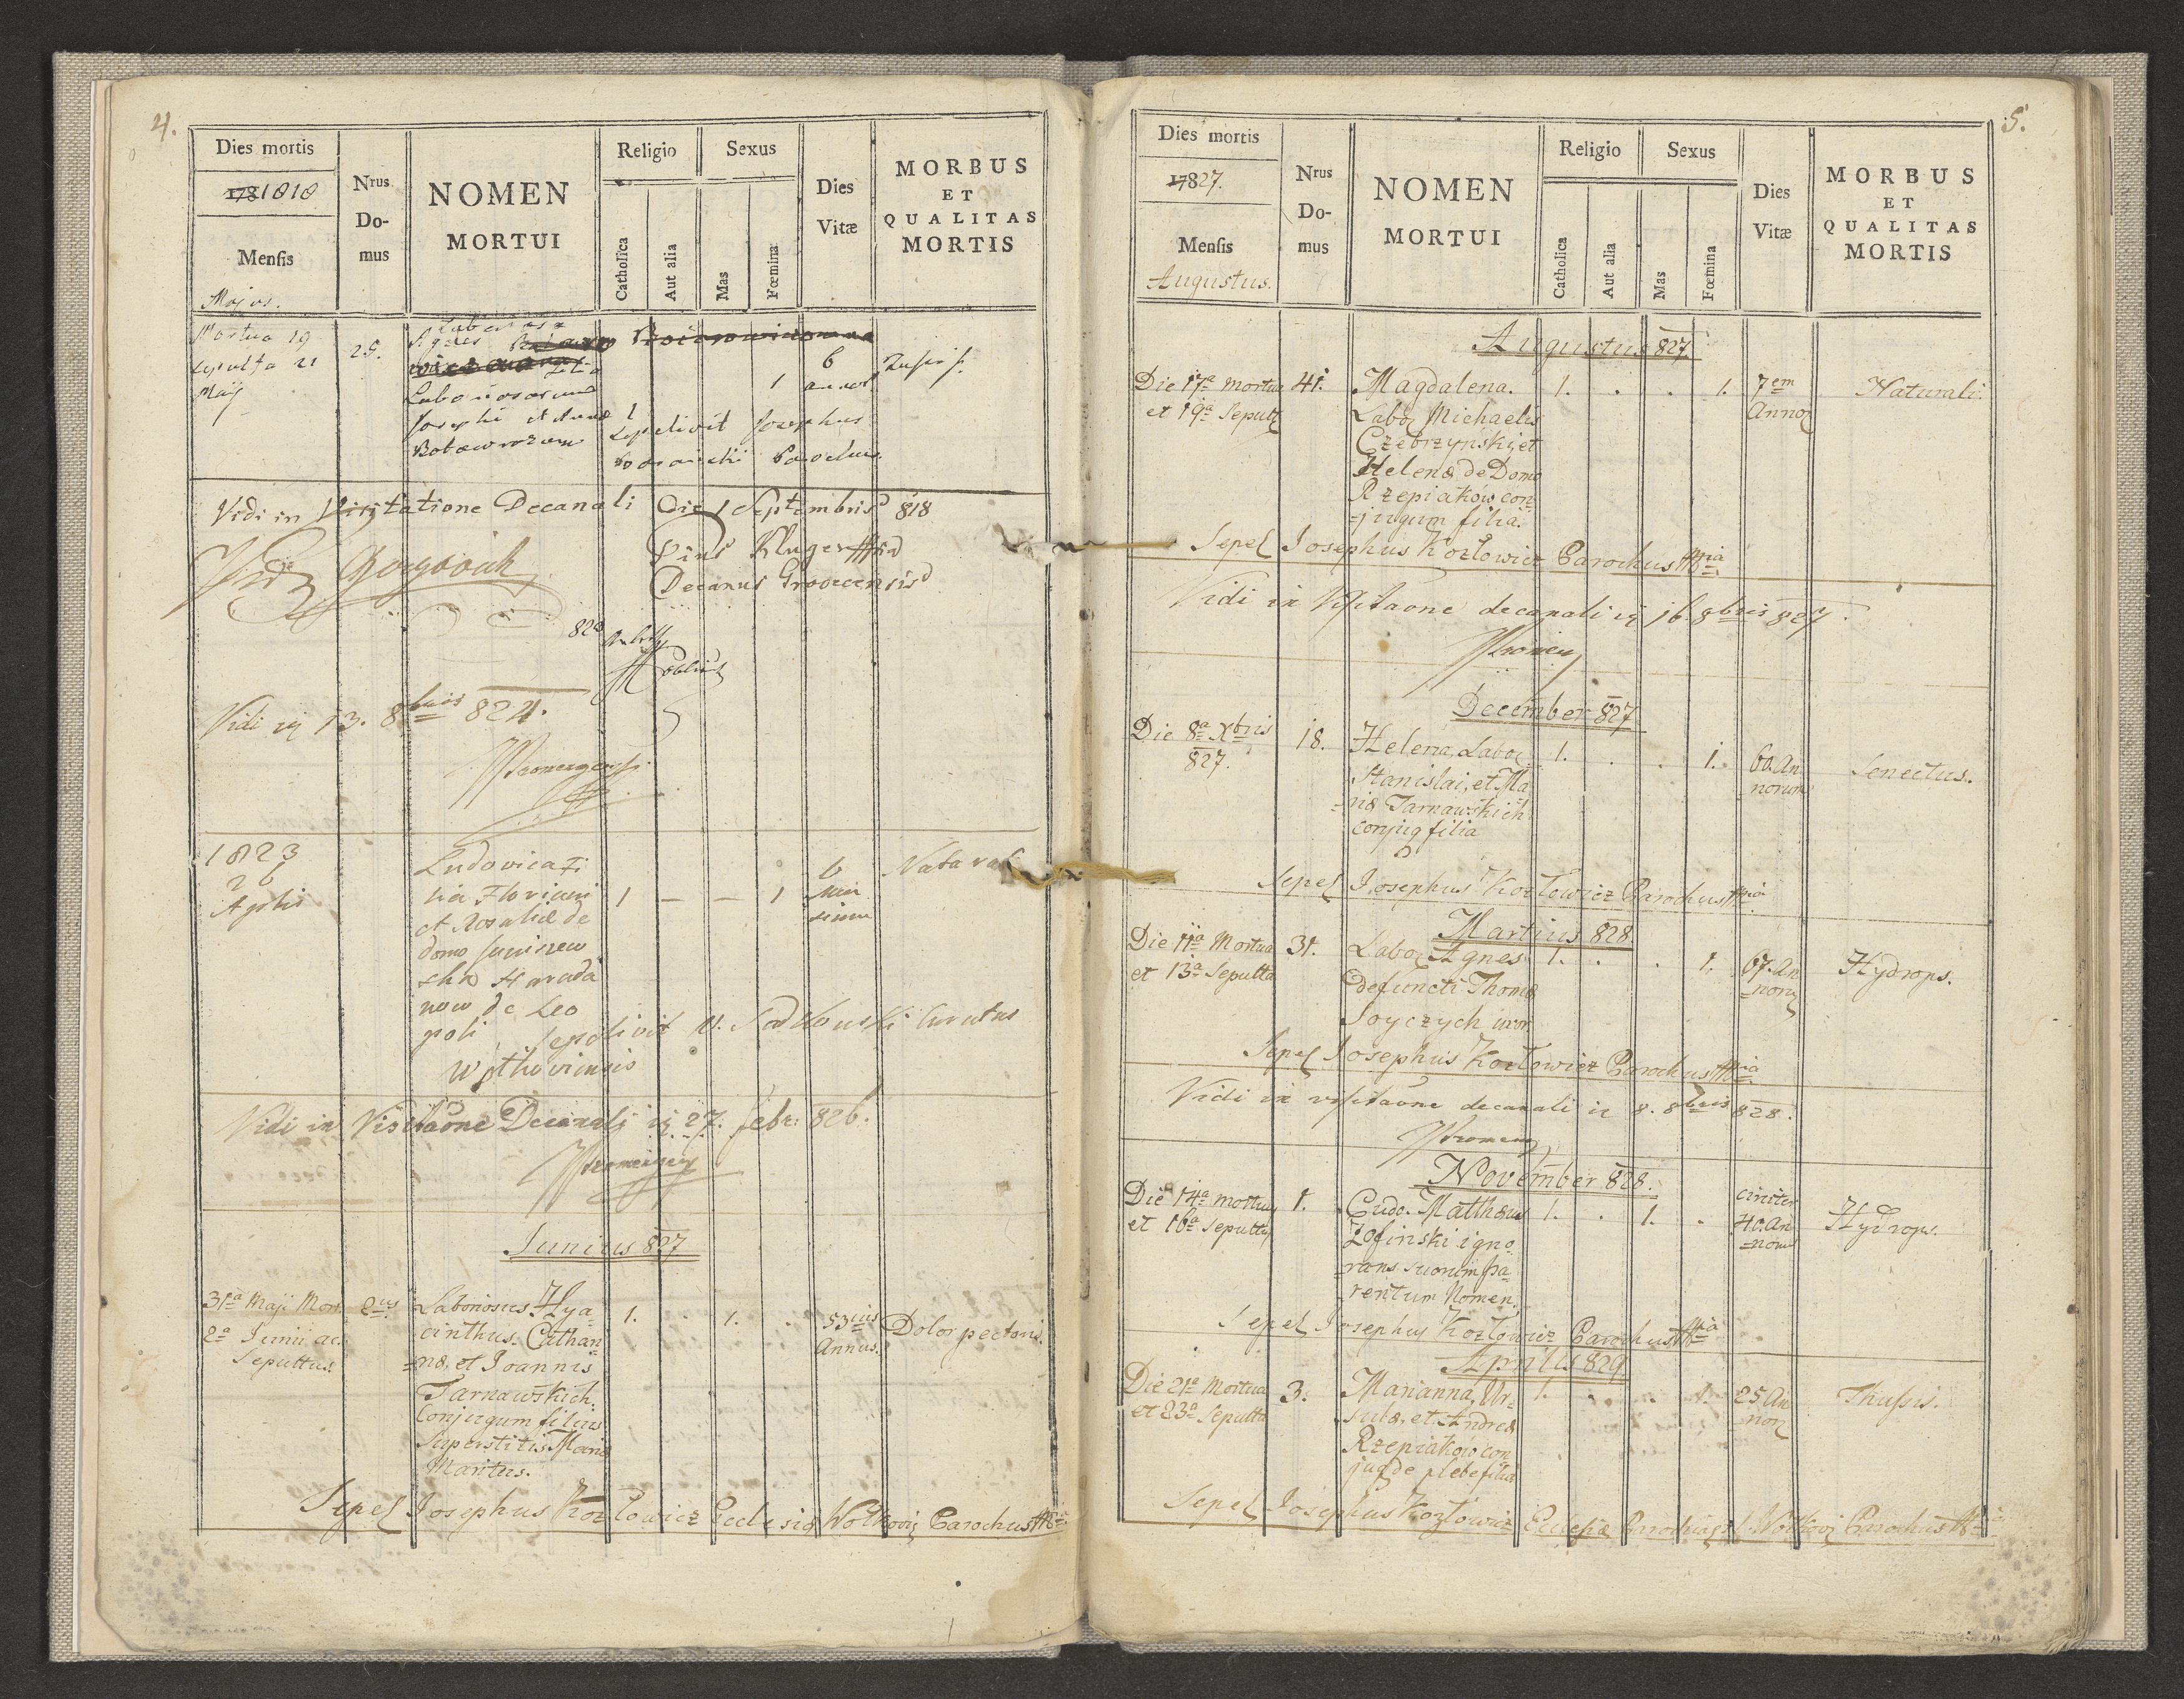 4.
Dies mortis
1781818
Mensis
Majus.
Nrus
Do-
mus
NOMEN
MORTUI
Religio
Catholica
Aut alia
Sexus
Mas
Fœmina
Dies
Vitæ
MORBUS
ET
QUALITAS
MORTIS
Mortua 19
sepulta 21
Maij
25.
Laboriosa
Agnes
filia
Laboriosorum
Josephi et Annæ
1
1
6
annor.
Tussis.
Sepelivit Josephus
Parochus.
Vidi in Visitatione Decanali Die 1 Septembris 818
Pius Kluger
Decanus Grodecensis
820
Vidi in 13. 8bris 824.
1823
26
Aprlis
Ludovica Fi
lia Floriani
et Rosaliæ de
domo
now de Leo
poli
1 — — 1
6
Natural
Sepelivit V. Sadlowski Curatus
Vidi in Visitaone Decanali in 27. febr: 826.
Junius 827
31a Maji Mort.
2a Junii ac.
Sepultus.
2us
Laboriosus Hya
cinthus. Cathari
=næ, et Joannis
Tarnawskich.
Conjugum filius
Superstitis Mariæ
Maritus.
1. . 1. .
53ius
Annus.
Dolor pectoris.
Sepel Josephus Kozlowicz Ecclesiæ Wolkovien Parochus
5.
Dies mortis
17827.
Mensis
Augustus.
Nrus
Do-
mus
NOMEN
MORTUI
Religio
Catholica
Aut alia
Sexus
Mas
Fœmina
Dies
Vitæ
MORBUS
ET
QUALITAS
MORTIS
Augustus 827
Die 17a Mortua
et 19a Sepult
41.
Magdalena.
Labo Michaelis
Czebrzynski, et
Helenæ de Domo
Rzepiakow con
=jugum filia.
1. . . 1.
7em
Anno
Naturali.
Sepel Josephus Kozlowicz Parochus
Vidi in Visitaone decanali in 16 8bris 827.
December 827
Die 8a Xbris
827.
18.
Helena, Labo
Stanislai, et Ma
=riæ Tarnawskich
conjug filia
1. . . 1.
60. An
norum
Senectus.
Sepel Josephus Kozlowicz Parochus
Martius 828
Die 11a Mortua
et 13a Sepulta
31.
Labo Agnes
defuncti Thomæ
Soyczych uxor
1. . . 1.
67. An
=nor
Hydrops.
Sepel Josephus Kozlowicz Parochus
Vidi in visitaone decanali in 8. 8bris 828.
November 828.
Die 14a mortuus
et 16a sepultus
1.
Matthæus
Zofinski igno
=rans suorum pa
=rentum Nomen.
1. . 1. .
circiter
40. An
=norum
Hydrops.
Sepel Josephus Kozlowicz Parochus
Aprilis 829
Die 21a Mortua
et 23a Sepulta
3.
Marianna, Ur
sulæ, et Andreæ
Rzepiakow con
jug de plebe filia
1. . . 1.
25 An
nor
Thussis.
Sepel Josephus Kozlowicz Ecclesiæ Parochus